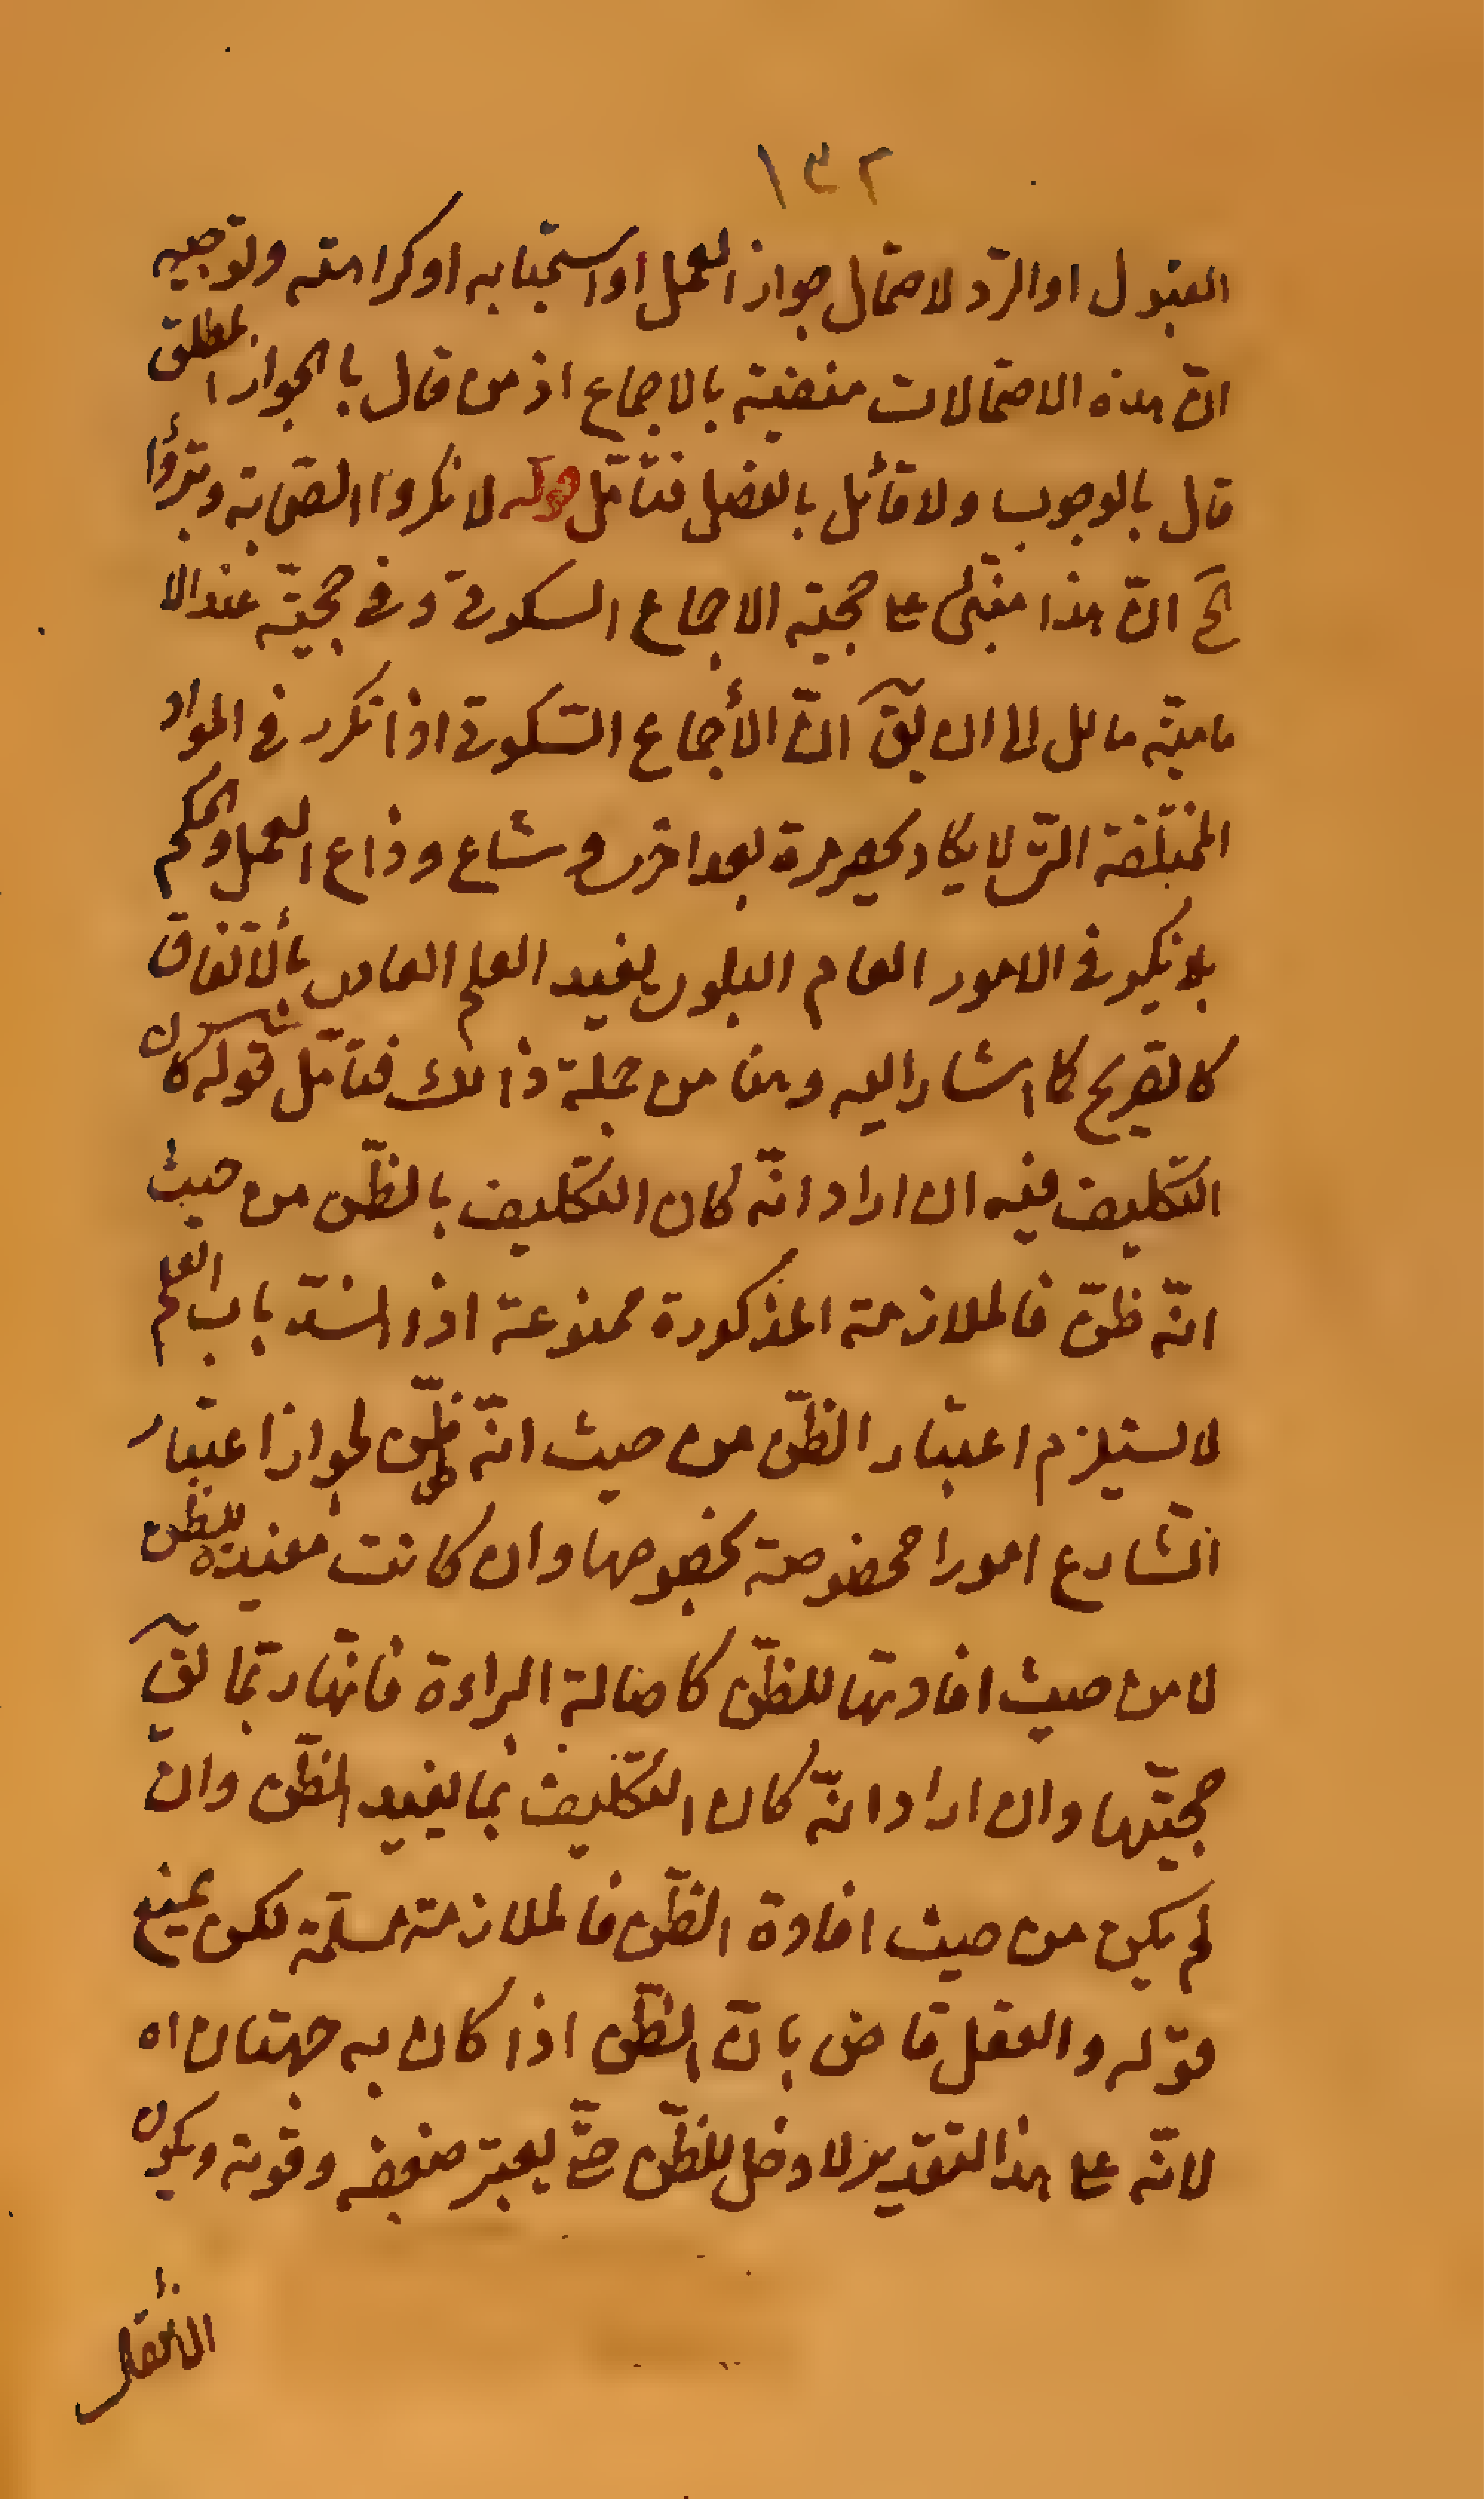 ١٣٢
القبول او الردّ لاحتمال جواز العمل او استحبابه او كراهته وتوجيهه
انّ هذه الاحتمالات منفيّة بالاجماع اذ من قال بالجواز المطلق
قال بالوجوب ولا قائل بالفصل فتأمّل قوله لانكروا الصّحابة وتبرّؤا
لح انّ هذا مبنىّ على حجّية الاجماع السكوتى وفى حجّيّته عند الا
ماميّة ما لل الى ان يقآ انّ الأجماع السّكوتى اذا تكرر فى المواد
المختلفة التى لا يكاد يحصر مرة بعد اخرى وشاع وذاع العمل والحكم
بلا نكير فى الامور العام البلوى يفيد العلم العادى بألاتّفاق
كالتصريح كما اشار اليه وهنا من جملة ذالك فتأمّل قوله كان
التكليف فيه ان اراد انّه كان التكليف بالظّن من حيث
انّه ظنّ فالملازمة المذكورة ممنوعة اذ انسدّ باب العلم
لا يستلزم اعتبار الظّن من حيث انّه ظنّ لجواز اعتبار
الشّارع امورا مخصوصة بخصوصها وان كانت مفيدة للظن
لا من حيث افادتها للظّن كاصالة البراءة فانّها ربّما يقآ
حجيّتها وان اراد انّه كان التكليف بما يفيد الظّن وان
لم يكن من حيث افادة الظّن فالملازمة مسلّمة لكن يمنع
قوله والعقل قاض بانّ الظّن اذا كان به جهتان اه
لانّه على هذا التقدير لا دخل للظّن حتّى يعتبر ضعفه وقوته ويكون